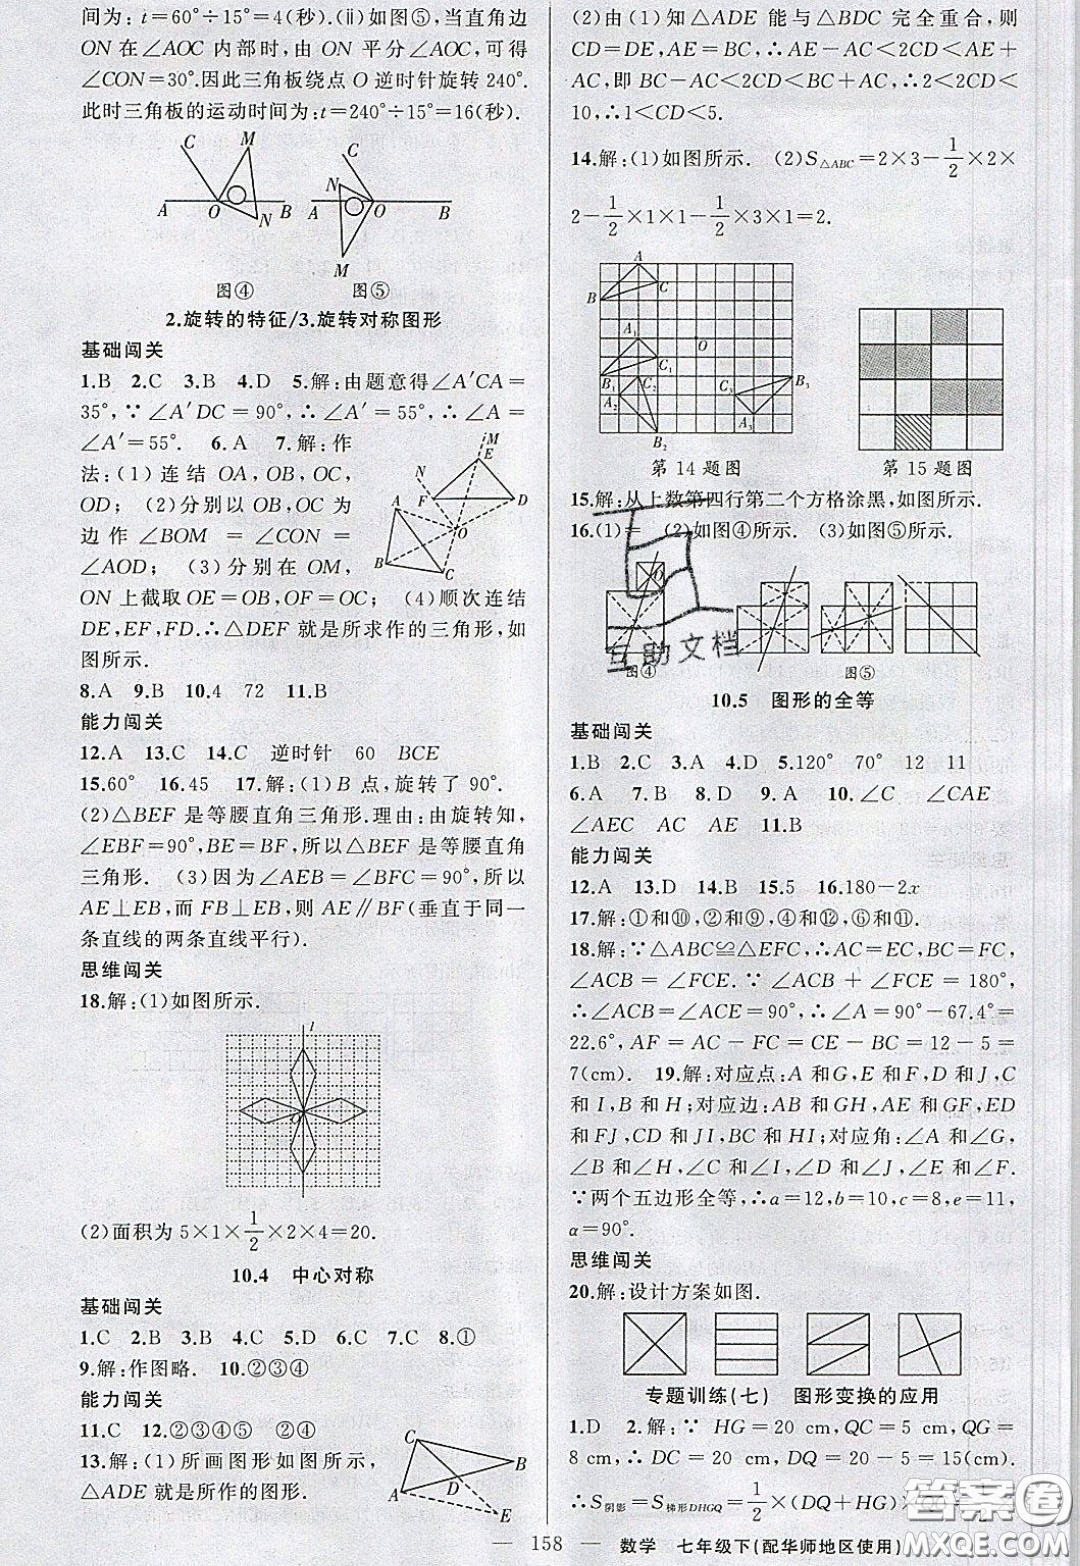 间为:t=60°÷15°=4(秒).(ⅱ)如图⑤,当直角边
ON在∠AOC内部时,由ON平分∠AOC,可得
∠CON=30°.因此三角板绕点O逆时针旋转240°.
此时三角板的运动时间为:t=240°÷15°=16(秒).
C M A O B N
C N A O B M
图④ 图⑤
2.旋转的特征/3.旋转对称图形
基础闯关
1.B 2.C 3.B 4.D 5.解:由题意得∠A′CA=
35°,∵∠A′DC=90°,∴∠A′=55°,∴∠A=
∠A′=55°. 6.A 7.解:作
法:(1)连结OA,OB,OC,
OD;(2)分别以OB,OC为
边作∠BOM=∠CON=
∠AOD;(3)分别在OM,
ON上截取OE=OB,OF=OC;(4)顺次连结
DE,EF,FD.∴△DEF就是所求作的三角形,如
图所示.
M E N F D A O B C
8.A 9.B 10.4 72 11.B
能力闯关
12.A 13.C 14.C 逆时针 60 BCE
15.60° 16.45 17.解:(1)B点,旋转了90°.
(2)△BEF是等腰直角三角形.理由:由旋转知,
∠EBF=90°,BE=BF,所以△BEF是等腰直角
三角形. (3)因为∠AEB=∠BFC=90°,所以
AE⊥EB,而FB⊥EB,则AE∥BF(垂直于同一
条直线的两条直线平行).
思维闯关
18.解:(1)如图所示.
l
O
(2)面积为5×1×1/2×2×4=20.
10.4 中心对称
基础闯关
1.C 2.B 3.B 4.C 5.D 6.C 7.C 8.①
9.解:作图略. 10.②③④
能力闯关
11.C 12.②③④⑤ ②④
13.解:(1)所画图形如图所示,
△ADE就是所作的图形.
C B D A E
(2)由(1)知△ADE能与△BDC完全重合,则
CD=DE,AE=BC,∴AE-AC<2CD<AE+
AC,即BC-AC<2CD<BC+AC,∴2<2CD<
10,∴1<CD<5.
14.解:(1)如图所示. (2)S△ABC=2×3-1/2×2×
2-1/2×1×1-1/2×3×1=2.
A B C A1 O B1 C1 C2 A2 B2 C3 B3 A3
第14题图 第15题图
15.解:从上数第四行第二个方格涂黑,如图所示.
16.(1)= (2)如图④所示. (3)如图⑤所示.
图④ 图⑤
互助文档
10.5 图形的全等
基础闯关
1.B 2.C 3.A 4.D 5.120° 70° 12 11
6.A 7.B 8.D 9.A 10.∠C ∠CAE
∠AEC AC AE 11.B
能力闯关
12.A 13.D 14.A 15.5 16.180-2x
17.解:①和⑩,②和⑨,④和⑫,⑥和⑪.
18.解:∵△ABC≌△EFC,∴AC=EC,BC=FC,
∠ACB=∠FCE.∵∠ACB+∠FCE=180°,
∴∠ACB=∠ACE=90°,∴∠A=90°-67.4°=
22.6°,AF=AC-FC=CE-BC=12-5=
7(cm). 19.解:对应点:A和G,E和F,D和J,C
和I,B和H;对应边:AB和GH,AE和GF,ED
和FJ,CD和JI,BC和HI;对应角:∠A和∠G,
∠B和∠H,∠C和∠I,∠D和∠J,∠E和∠F.
∵两个五边形全等,∴a=12,b=10,c=8,e=11,
α=90°.
思维闯关
20.解:设计方案如图.
专题训练(七) 图形变换的应用
1.D 2.解:∵HG=20 cm,QC=5 cm,QG=
8 cm,∴DC=20 cm,DQ=20-5=15(cm).
∴S阴影=S梯形DHGQ=1/2×(DQ+HG)×
答案圈
MXQE.COM
158 数学 七年级下(配华师地区使用)